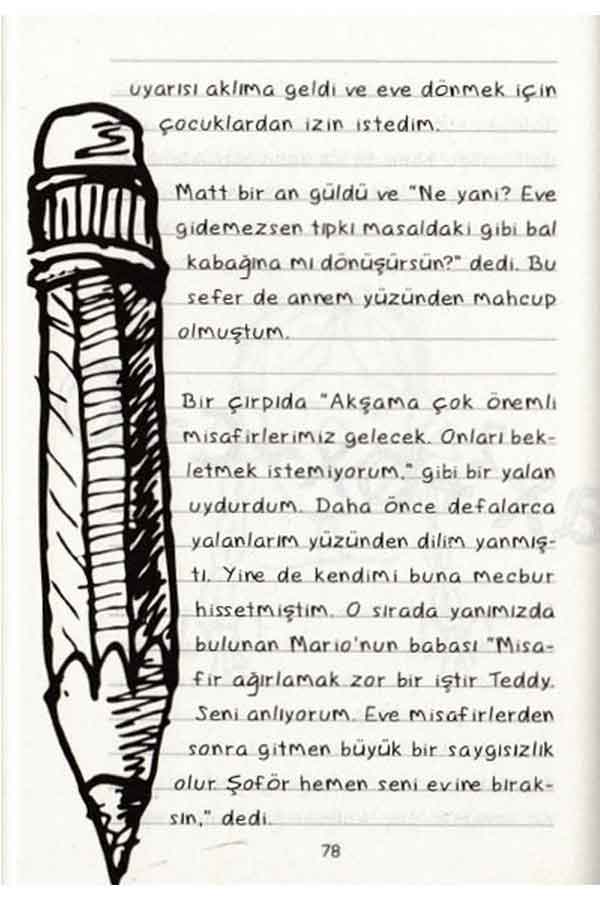 uyarısı aklıma geldi ve eve dönmek için
çocuklardan izin istedim.
Matt bir an güldü ve "Ne yani? Eve
gidemezsen tıpkı masaldaki gibi bal
kabağına mı dönüşürsün?" dedi. Bu
sefer de annem yüzünden mahcup
olmuştum.
Bir çırpıda "Akşama çok önemli
misafirlerimiz gelecek. Onları bek-
letmek istemiyorum," gibi bir yalan
uydurdum. Daha önce defalarca
yalanlarım yüzünden dilim yanmış-
tı. Yine de kendimi buna mecbur
hissetmiştim. O sırada yanımızda
bulunan Mario'nun babası "Misa-
fir ağırlamak zor bir iştir Teddy.
Seni anlıyorum. Eve misafirlerden
sonra gitmen büyük bir saygısızlık
olur. Şoför hemen seni evine bırak-
sın," dedi.
78